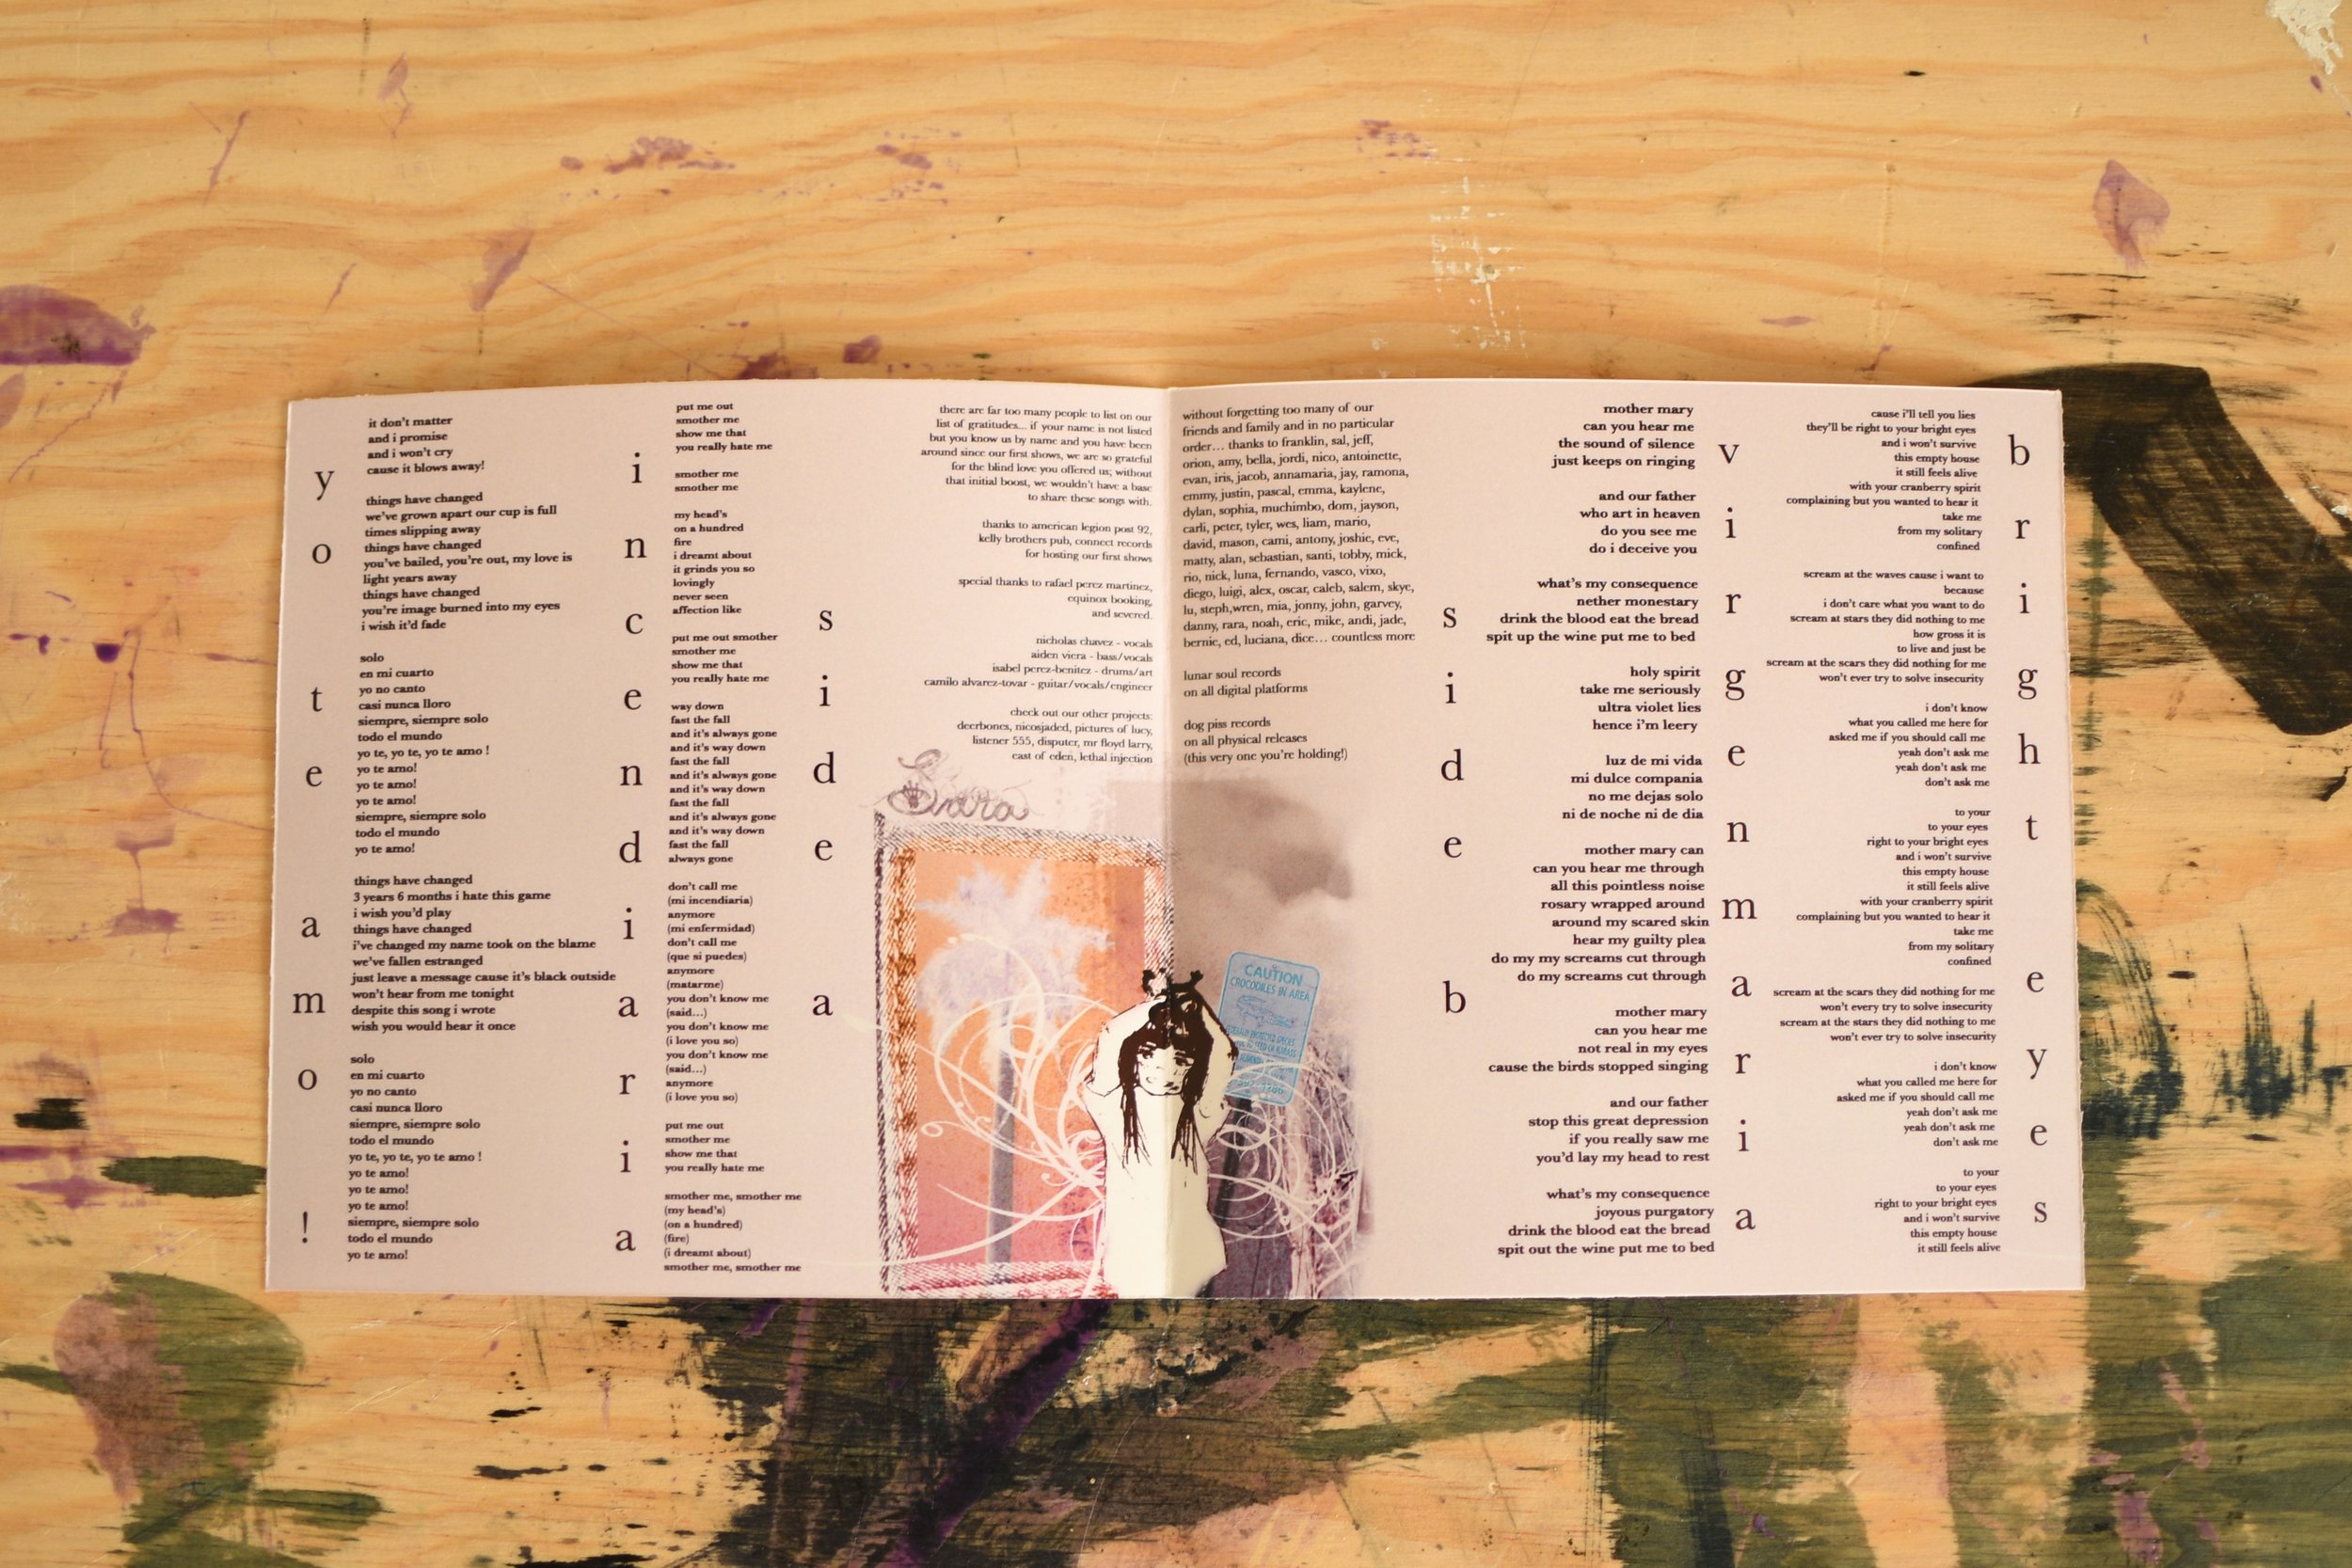 yo te amo!
it don't matter
and i promise
and i won't cry
cause it blows away!
things have changed
we've grown apart our cup is full
times slipping away
things have changed
you've bailed, you're out, my love is
light years away
things have changed
you're image burned into my eyes
i wish it'd fade
solo
en mi cuarto
yo no canto
casi nunca lloro
siempre, siempre solo
todo el mundo
yo te, yo te, yo te amo !
yo te amo!
yo te amo!
yo te amo!
siempre, siempre solo
todo el mundo
yo te amo!
things have changed
3 years 6 months i hate this game
i wish you'd play
things have changed
i've changed my name took on the blame
we've fallen estranged
just leave a message cause it's black outside
won't hear from me tonight
despite this song i wrote
wish you would hear it once
solo
en mi cuarto
yo no canto
casi nunca lloro
siempre, siempre solo
todo el mundo
yo te, yo te, yo te amo !
yo te amo!
yo te amo!
yo te amo!
siempre, siempre solo
todo el mundo
yo te amo!
incendiaria
put me out
smother me
show me that
you really hate me
smother me
smother me
my head's
on a hundred
fire
i dreamt about
it grinds you so
lovingly
never seen
affection like
put me out smother
smother me
show me that
you really hate me
way down
fast the fall
and it's always gone
and it's way down
fast the fall
and it's always gone
and it's way down
fast the fall
and it's always gone
and it's way down
fast the fall
always gone
don't call me
(mi incendiaria)
anymore
(mi enfermidad)
don't call me
(que si puedes)
anymore
(matarme)
you don't know me
(said...)
you don't know me
(i love you so)
you don't know me
(said...)
anymore
(i love you so)
put me out
smother me
show me that
you really hate me
smother me, smother me
(my head's)
(on a hundred)
(fire)
(i dreamt about)
smother me, smother me
side a
there are far too many people to list on our
list of gratitudes... if your name is not listed
but you know us by name and you have been
around since our first shows, we are so grateful
for the blind love you offered us; without
that initial boost, we wouldn't have a base
to share these songs with.
thanks to american legion post 92,
kelly brothers pub, connect records
for hosting our first shows
special thanks to rafael perez martinez,
equinox booking,
and severed.
nicholas chavez - vocals
aiden viera - bass/vocals
isabel perez-benitez - drums/art
camilo alvarez-tovar - guitar/vocals/engineer
check out our other projects:
deerbones, nicosjaded, pictures of lucy,
listener 555, disputer, mr floyd larry,
east of eden, lethal injection
without forgetting too many of our
friends and family and in no particular
order... thanks to franklin, sal, jeff,
orion, amy, bella, jordi, nico, antoinette,
evan, iris, jacob, annamaria, jay, ramona,
emmy, justin, pascal, emma, kaylene,
dylan, sophia, muchimbo, dom, jayson,
carli, peter, tyler, wes, liam, mario,
david, mason, cami, antony, joshie, eve,
matty, alan, sebastian, santi, tobby, mick,
rio, nick, luna, fernando, vasco, vixo,
diego, luigi, alex, oscar, caleb, salem, skye,
lu, steph,wren, mia, jonny, john, garvey,
danny, rara, noah, eric, mike, andi, jade,
bernie, ed, luciana, dice... countless more
lunar soul records
on all digital platforms
dog piss records
on all physical releases
(this very one you're holding!)
CAUTION
CROCODILES IN AREA
side b
mother mary
can you hear me
the sound of silence
just keeps on ringing
and our father
who art in heaven
do you see me
do i deceive you
what's my consequence
nether monestary
drink the blood eat the bread
spit up the wine put me to bed
holy spirit
take me seriously
ultra violet lies
hence i'm leery
luz de mi vida
mi dulce compania
no me dejas solo
ni de noche ni de dia
mother mary can
can you hear me through
all this pointless noise
rosary wrapped around
around my scared skin
hear my guilty plea
do my my screams cut through
do my screams cut through
mother mary
can you hear me
not real in my eyes
cause the birds stopped singing
and our father
stop this great depression
if you really saw me
you'd lay my head to rest
what's my consequence
joyous purgatory
drink the blood eat the bread
spit out the wine put me to bed
virgen maria
cause i'll tell you lies
they'll be right to your bright eyes
and i won't survive
this empty house
it still feels alive
with your cranberry spirit
complaining but you wanted to hear it
take me
from my solitary
confined
scream at the waves cause i want to
because
i don't care what you want to do
scream at stars they did nothing to me
how gross it is
to live and just be
scream at the scars they did nothing for me
won't ever try to solve insecurity
i don't know
what you called me here for
asked me if you should call me
yeah don't ask me
yeah don't ask me
don't ask me
to your
to your eyes
right to your bright eyes
and i won't survive
this empty house
it still feels alive
with your cranberry spirit
complaining but you wanted to hear it
take me
from my solitary
confined
scream at the scars they did nothing for me
won't every try to solve insecurity
scream at the stars they did nothing to me
won't ever try to solve insecurity
i don't know
what you called me here for
asked me if you should call me
yeah don't ask me
yeah don't ask me
don't ask me
to your
to your eyes
right to your bright eyes
and i won't survive
this empty house
it still feels alive
bright eyes